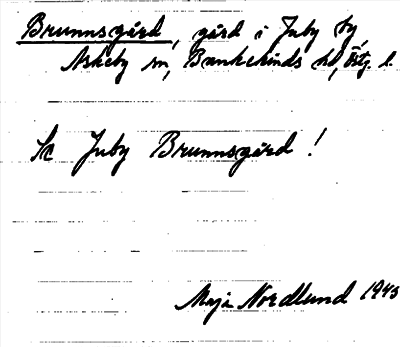 Brunnsgård, gård i Juby by,
Askeby sn, Bankekinds hd, Östg. l.
Se Juby Brunnsgård!
Maja Nordlund 1945